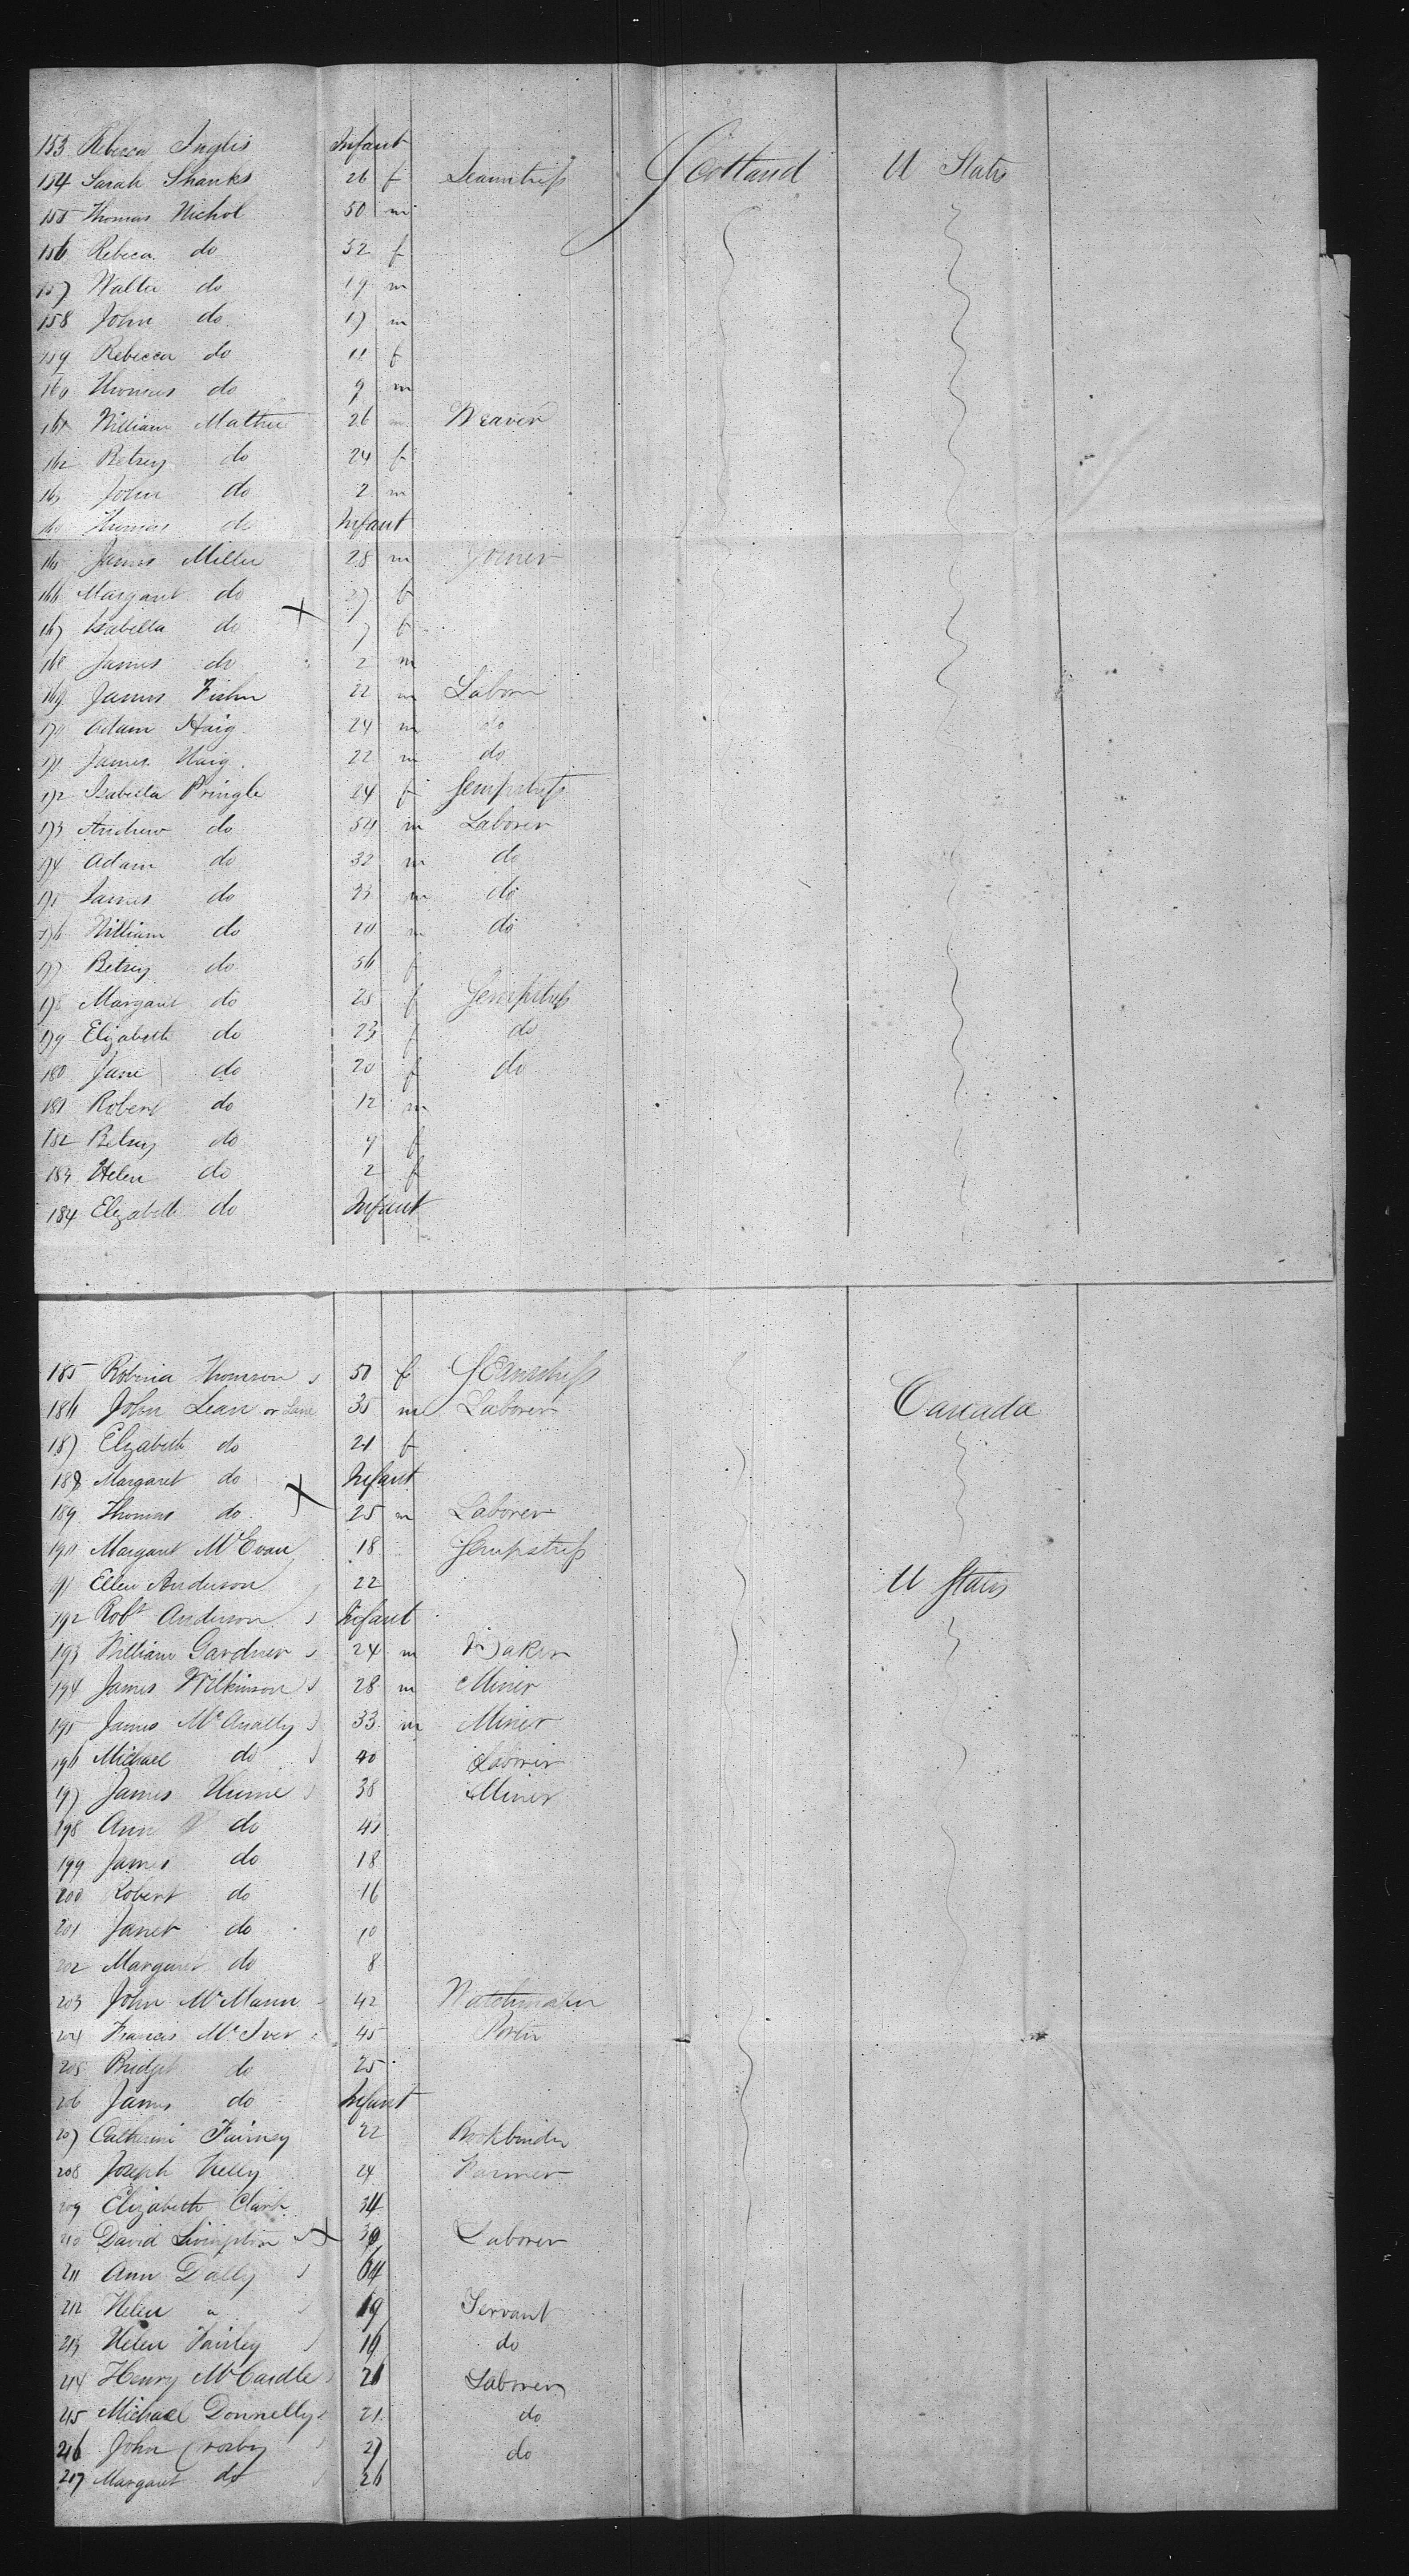 153 Rebecca Inglis Infant
154 Sarah Shanks 26 f Seamstress Scotland U States
155 Thomas Nichol 50 m
156 Rebeca do 52 f
157 Walter do 19 m
158 John do 17 m
159 Rebecca do 11 f
160 Thomas do 9 m
161 William Mathie 26 m Weaver
162 Betsey do 24 f
163 John do 2 m
Thomas do Infant
165 James Miller 28 m Joiner
166 Margaret do 27 f
167 Isabella do 7 f
168 James do 2 m
169 James Fisher 22 m Laborer
170 Adam Haig 24 m do
171 James Haig 22 m do
172 Isabella Pringle 24 f Sempstress
173 Andrew do 54 m Laborer
174 Adam do 32 m do
175 James do 23 m do
176 William do 20 m do
177 Betsey do 56 f
178 Margaret do 25 f Sempstress
179 Elizabeth do 23 f do
180 Jane do 20 f do
181 Robert do 12 m
182 Betsey do 9 f
183 Helen do 2 f
184 Elizabeth do Infant
185 Robina Thomson 50 f Seamstress
186 John Lean or Lane 35 m Laborer Canada
187 Elizabeth do 21 f
188 Margaret do Infant
189 Thomas do 25 m Laborer
190 Margaret McEwan 18 Sempstress
191 Ellen Anderson 22 U States
192 Robt Anderson Infant
193 William Gardner 24 m Baker
194 James Wilkinson 28 m Miner
195 James McAnally 33 m Miner
196 Michael do 40 Laborer
197 James Hume 38 Miner
198 Ann do 40
199 James do 18
200 Robert do 16
201 Janet do 10
202 Margaret do 8
203 John McMann 42 Watchmaker
204 Francis McIver 45 Porter
205 Bridget do 25
206 James do Infant
207 Catherine Fairney 22 Bookbinder
208 Joseph Kelly 24 Farmer
209 Elizabeth Clark 34
210 David Livingston 30 Laborer
211 Ann Dally 64
212 Helen " 19 Servant
213 Helen Fairley 16 do
214 Henry McCardle 26 Laborer
215 Michael Donnelly 21 do
216 John Crosby 27 do
217 Margaret do 26